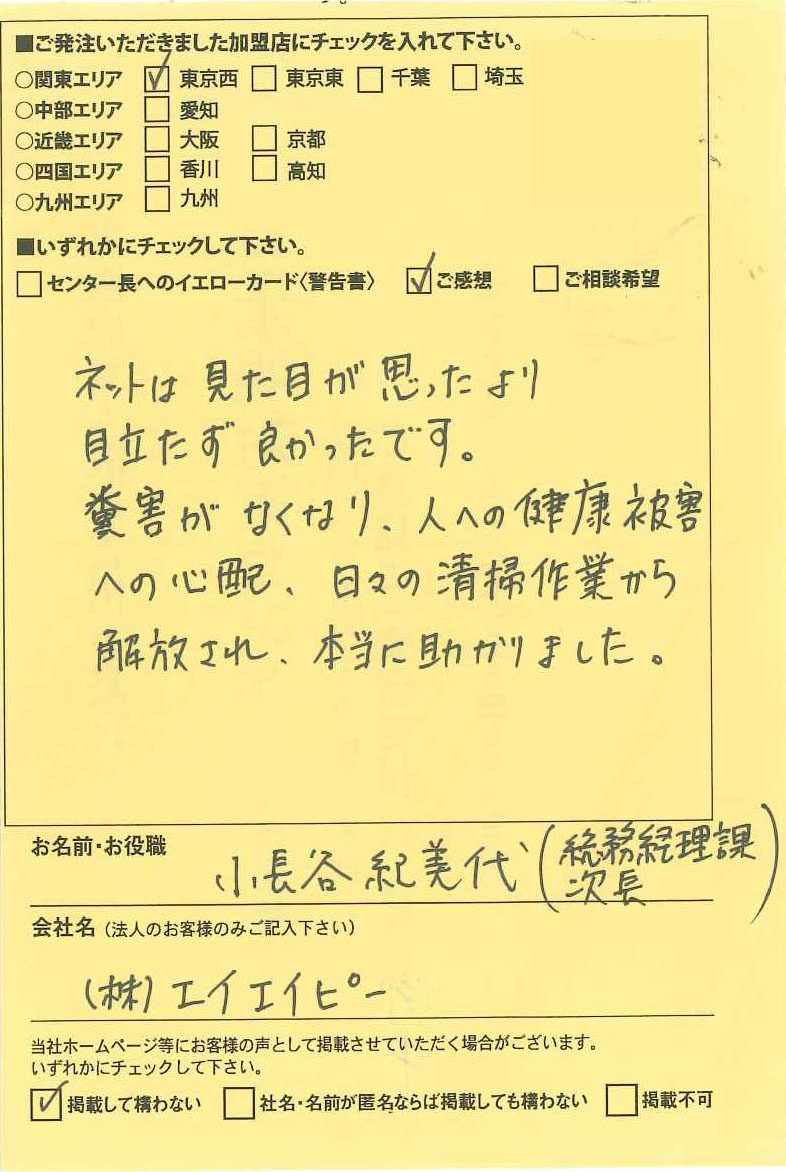 ■ご発注いただきました加盟店にチェックを入れて下さい。
○関東エリア ☑ 東京西 □ 東京東 □ 千葉 □ 埼玉
○中部エリア □ 愛知
○近畿エリア □ 大阪 □ 京都
○四国エリア □ 香川 □ 高知
○九州エリア □ 九州
■いずれかにチェックして下さい。
□ センター長へのイエローカード〈警告書〉 ☑ ご感想 □ ご相談希望
ネットは見た目が思ったより
目立たず良かったです。
糞害がなくなり、人への健康被害
への心配、日々の清掃作業から
解放され、本当に助かりました。
お名前・お役職
小長谷紀美代(総務経理課
次長)
会社名(法人のお客様のみご記入下さい)
(株)エイエイピー
当社ホームページ等にお客様の声として掲載させていただく場合がございます。
いずれかにチェックして下さい。
☑ 掲載して構わない □ 社名・名前が匿名ならば掲載しても構わない □ 掲載不可